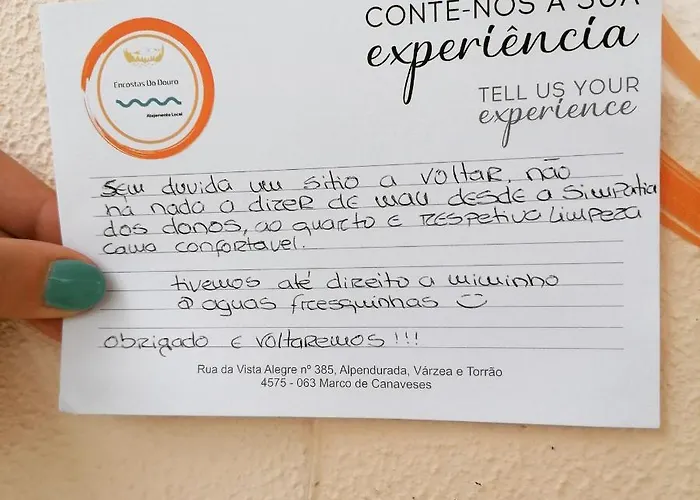 CONTE-NOS A SUA
experiência
TELL US YOUR
experience
Encostas Do Douro
Alojamento Local
Sem duvida um sitio a voltar, não
há nada a dizer de mau desde a simpatia
dos donos, ao quarto e respetiva limpeza
cama confortavel.
tivemos até direito a miminho
@ aguas fresquinhas ☺
obrigado e voltaremos !!!
Rua da Vista Alegre nº 385, Alpendurada, Várzea e Torrão
4575 - 063 Marco de Canaveses